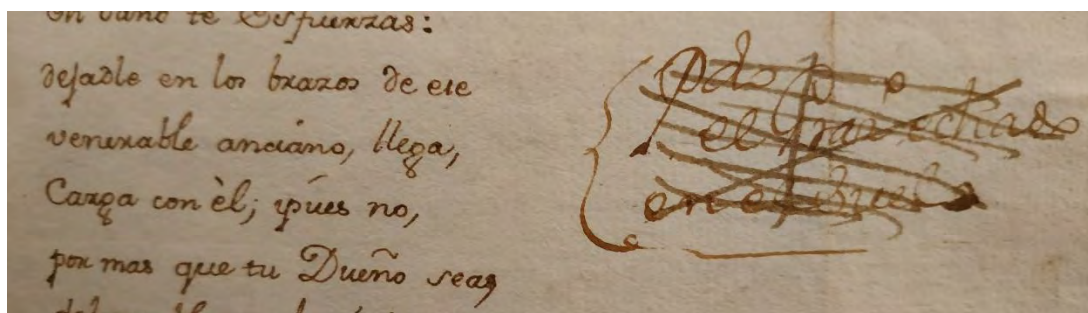 en vano te Esfuerzas:
dejadle en los brazos de ese
venerable anciano, llega,
Carga con èl; pues no,
por mas que tu Dueño seas,
el
en el suelo